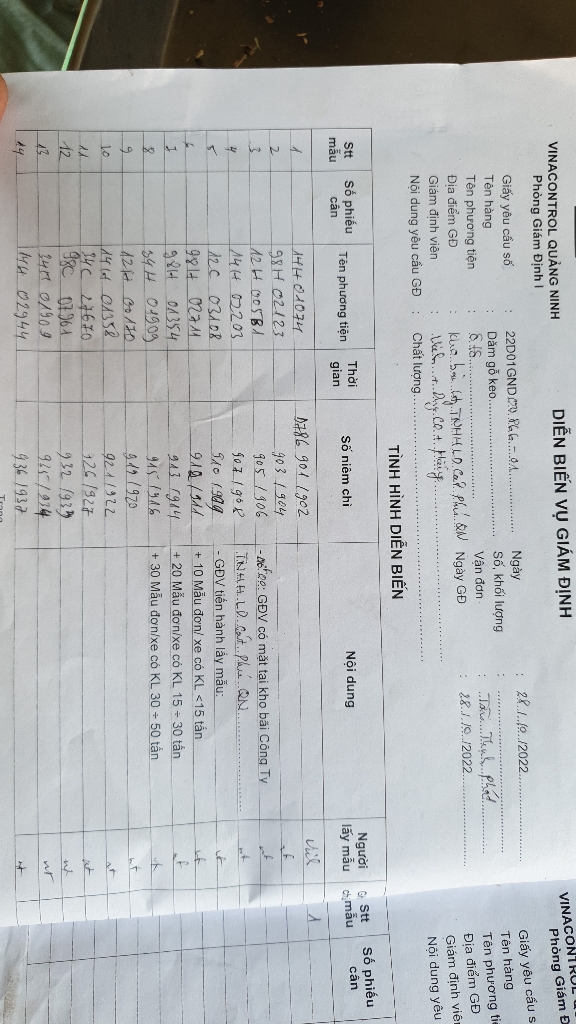 VINACONTROL QUẢNG NINH
Phòng Giám Định I
DIỄN BIẾN VỤ GIÁM ĐỊNH
Giấy yêu cầu số : 22D01GND Ngày : 28/10/2022
Tên hàng : Dăm gỗ keo Số, khối lượng :
Tên phương tiện : Ô tô Vận đơn :
Địa điểm GĐ : TNHH LD QN Ngày GĐ : 28/10/2022
Giám định viên :
Nội dung yêu cầu GĐ : Chất lượng
TÌNH HÌNH DIỄN BIẾN
Stt mẫu Số phiếu cân Tên phương tiện Thời gian Số niêm chì Nội dung Người lấy mẫu
1 14H 01074 901/902 1
2 98H 02123 903/904
3 12H 00581 905/906 GĐV có mặt tại kho bãi Công Ty
4 14H 02203 907/908 TNHH LD QN
5 12C 03108 - GĐV tiến hành lấy mẫu:
6 98H 02711 + 10 Mẫu đơn/ xe có KL <15 tấn
7 98H 01354 913/914 + 20 Mẫu đơn/xe có KL 15 ÷ 30 tấn
8 34H 01909 915/916 + 30 Mẫu đơn/xe có KL 30 ÷ 50 tấn
9 12H 00170
10 14H 01358 921/922
11 34C 27670 926/927
12 98C 07961
13 01909
14 14H 02944 936/937
Trang
VINACONTROL
Phòng Giám Đ
Giấy yêu cầu s
Tên hàng
Tên phương ti
Địa điểm GĐ
Giám định viê
Nội dung yêu
Stt mẫu Số phiếu cân